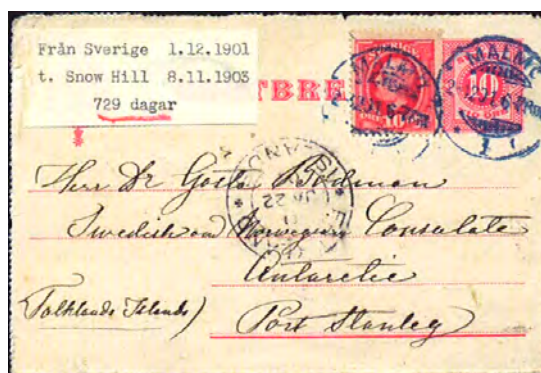 Från Sverige 1.12.1901
t. Snow Hill 8.11.1903
729 dagar
TBRE
MALMÖ
10
Herr Dr Gösta Bodman
Swedish and Norwegian Consulate
Antarctic
(Falklands Islands)
Port Stanley